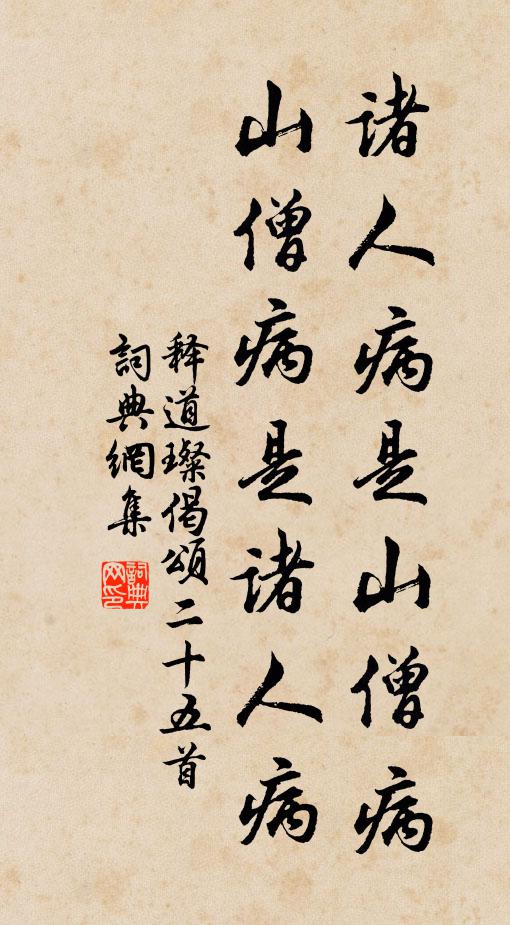 諸人病是山僧病
山僧病是諸人病
释道璨偈頌二十五首
詞典網集
詞典
网印